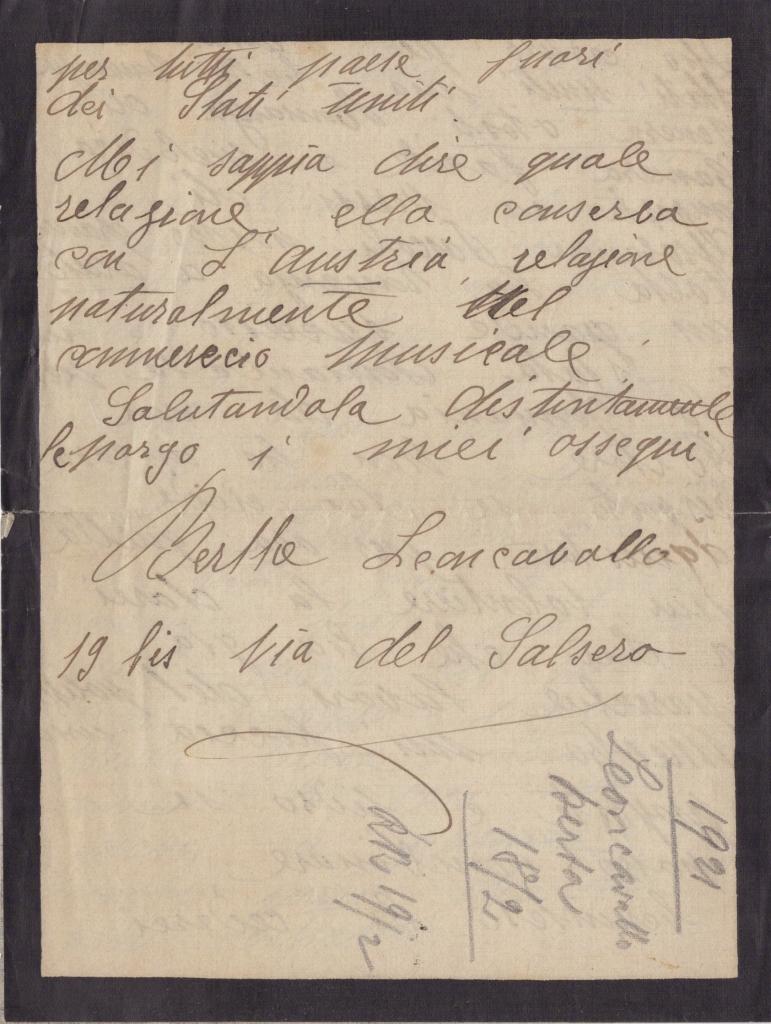 per tutti paese fuori
dei Stati Uniti
Mi sappia dire quale
relazione ella conserva
con L'Austria, relazione
naturalmente del
commercio musicale.
Salutandola distintamente
le porgo i miei ossequi
Berthe Leoncavallo
19 bis Via del Salsero
1921
Leoncavallo
Berta
18/2
19/2